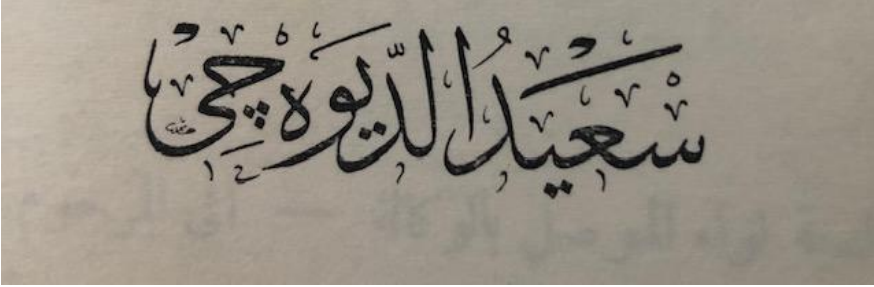 سعيد الديوه چي